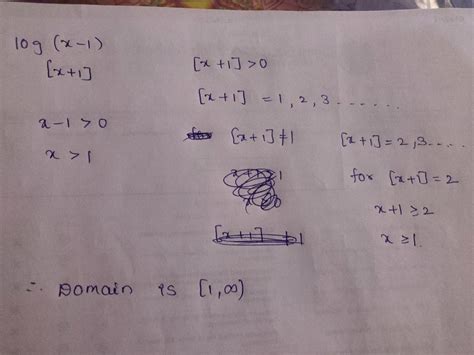 log (x-1)
[x+1]
x-1 > 0
x > 1
[x+1] > 0
[x+1] = 1, 2, 3 ......
[x+1] ≠ 1
[x+1] = 2, 3....
for [x+1] = 2
x+1 ≥ 2
x ≥ 1
∴ Domain is [1, ∞)